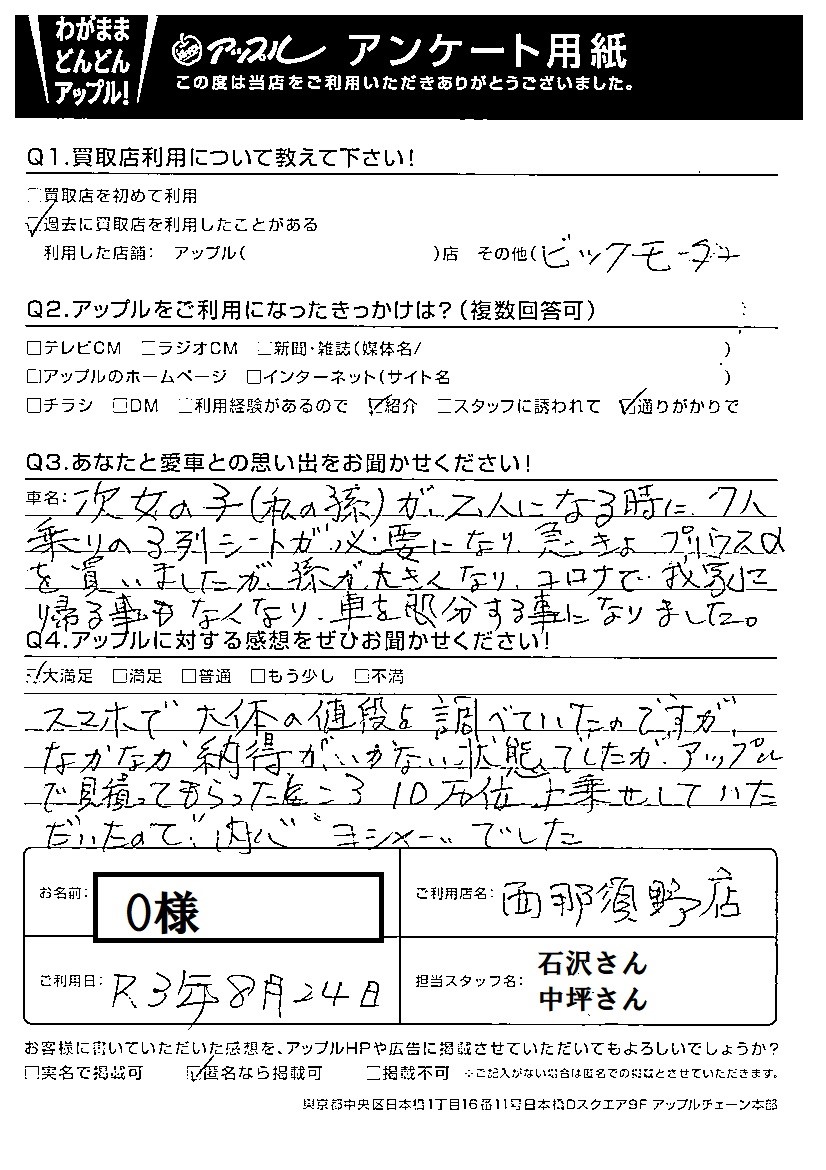 わがまま
どんどん
アップル!
アップル アンケート用紙
この度は当店をご利用いただきありがとうございました。
Q1.買取店利用について教えて下さい!
□買取店を初めて利用
☑過去に買取店を利用したことがある
利用した店舗: アップル( )店 その他(ビックモーター
Q2.アップルをご利用になったきっかけは?(複数回答可)
□テレビCM □ラジオCM □新聞・雑誌(媒体名/ )
□アップルのホームページ □インターネット(サイト名 )
□チラシ □DM □利用経験があるので ☑紹介 □スタッフに誘われて ☑通りがかりで
Q3.あなたと愛車との思い出をお聞かせください!
車名: 次女の子(私の孫)が、2人になる時に、7人
乗りの3列シートが必要になり、急きょ プリウスα
を買いましたが、孫が大きくなり、コロナで我家に
帰る事もなくなり、車を処分する事になりました。
Q4.アップルに対する感想をぜひお聞かせください!
☑大満足 □満足 □普通 □もう少し □不満
スマホで大体の値段を調べていたのですが、
なかなか納得がいかない状態でしたが、アップル
で見積ってもらったところ10万位上乗せしていた
だいたので、内心“ヨシメー”でした
お名前: O様
ご利用店名: 西那須野店
ご利用日: R3年8月24日
担当スタッフ名: 石沢さん
中坪さん
お客様に書いていただいた感想を、アップルHPや広告に掲載させていただいてもよろしいでしょうか?
□実名で掲載可 ☑匿名なら掲載可 □掲載不可 ※ご記入がない場合は匿名での掲載とさせていただきます。
東京都中央区日本橋1丁目16番11号日本橋Dスクエア9F アップルチェーン本部